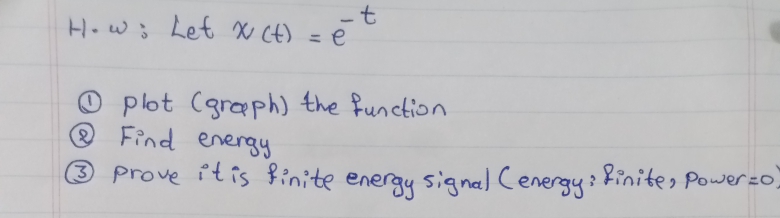 H.w; Let x(t) = e^-t
① plot (graph) the function
② Find energy
③ prove it is finite energy signal (energy: finite, power=0)